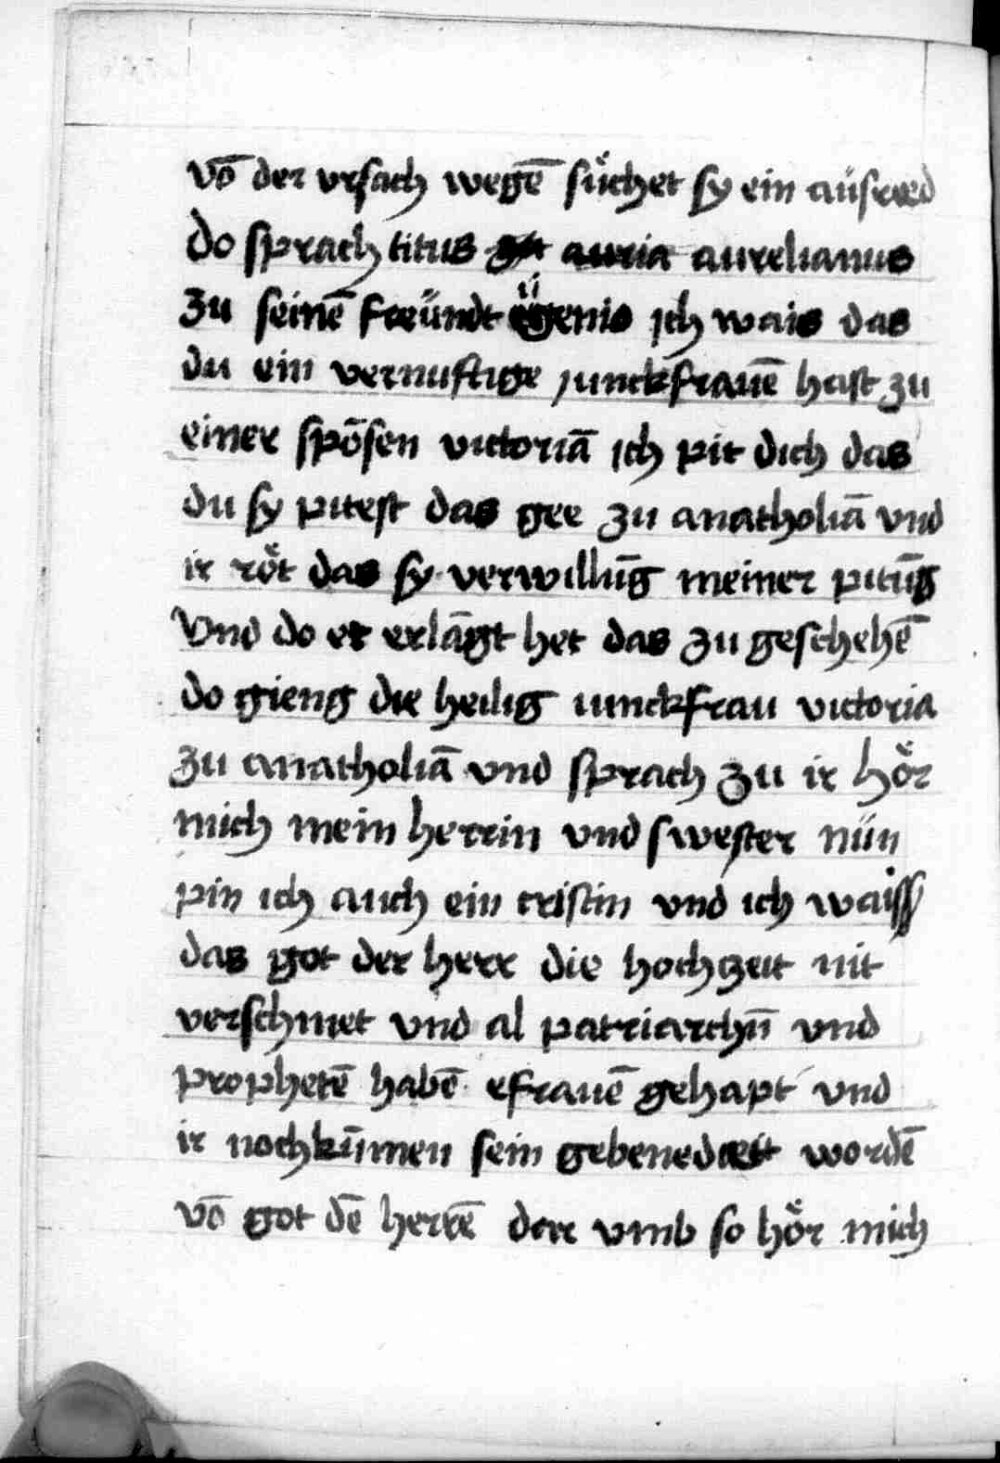 vō der vrsach wegē sůchet sy ein aüsred
do sprach titus auria aurelianus
zu seinē freündt egenio ich wais das
du ein vernuftige junckfrauē hast zu
einer spōsen victoriā ich pit dich das
du sy pitest das gee zu anatholiā vnd
ir röt das sy verwillūg meiner pitūg
Vnd do er erlāgt het das zu geschehē
do gieng die heilig iunckfrau victoria
zu anatholiā vnd sprach zu ir hör
mich mein herrin vnd swester nün
pin ich auch ein cristin vnd ich waiss
das got der herr die hochzeit nit
verschmet vnd al patriarchn̄ vnd
prophetē habē efrauē gehapt vnd
ir nochkūmen sein gebenedeit wordē
vō got dē herrē dar vmb so hör mich